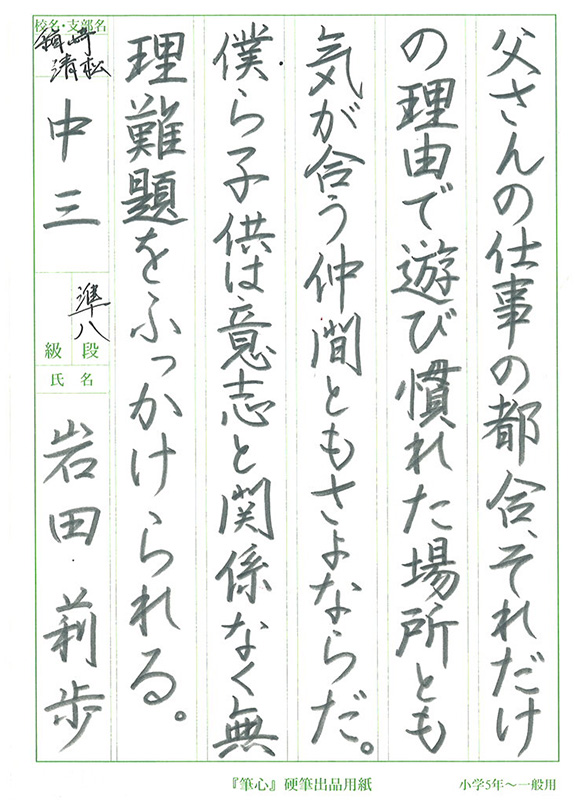 父さんの仕事の都合、それだけ
の理由で遊び慣れた場所とも
気が合う仲間ともさよならだ。
僕ら子供は意志と関係なく無
理難題をふっかけられる。
校名・支部名
清松
中三
準八
段
級
氏名
岩田莉歩
『筆心』硬筆出品用紙
小学5年〜一般用